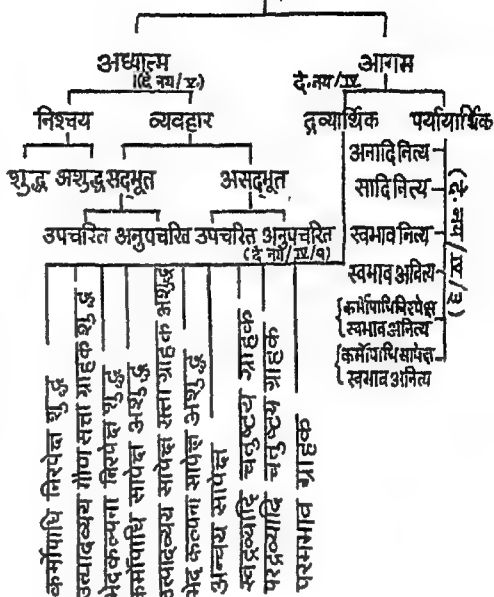 अध्यात्म आगम
(दे. नय/V.) दे. नय/IV.
निश्चय व्यवहार द्रव्यार्थिक पर्यायार्थिक
अनादि नित्य
शुद्ध अशुद्ध सद्भूत असद्भूत सादि नित्य
उपचरित अनुपचरित उपचरित अनुपचरित स्वभाव नित्य
स्वभाव अनित्य
कर्मोपाधि निरपेक्ष
स्वभाव अनित्य
कर्मोपाधि सापेक्ष
स्वभाव अनित्य
(दे. नय/IV/३)
कर्मोपाधि निरपेक्ष शुद्ध
उत्पादव्यय गौण सत्ता ग्राहक शुद्ध
भेदकल्पना निरपेक्ष शुद्ध
कर्मोपाधि सापेक्ष अशुद्ध
उत्पादव्यय सापेक्ष सत्ता ग्राहक अशुद्ध
भेद कल्पना सापेक्ष अशुद्ध
अन्वय सापेक्ष
स्वद्रव्यादि चतुष्टय ग्राहक
परद्रव्यादि चतुष्टय ग्राहक
परमभाव ग्राहक